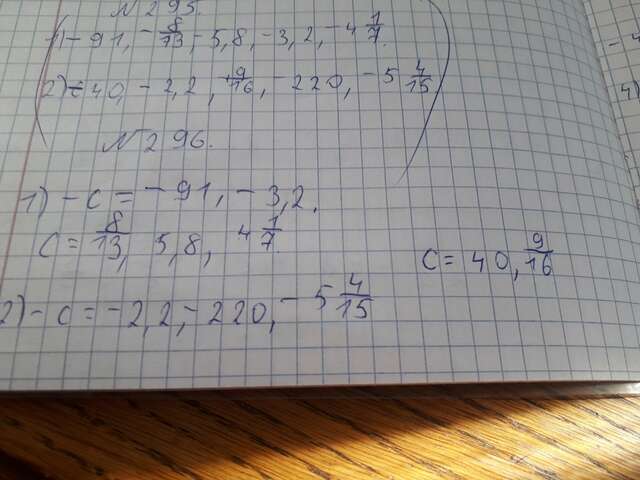 N 295.
1) - 91, - 8/13, - 5,8, - 3,2, - 4 1/7.
2) - 40, - 2,2, 9/16, - 220, - 5 4/15
N 296.
1) - c = - 91, - 3,2.
c = 8/13, 5,8, 4 1/7.
c = 40, 9/16
2) - c = - 2,2, - 220, - 5 4/15